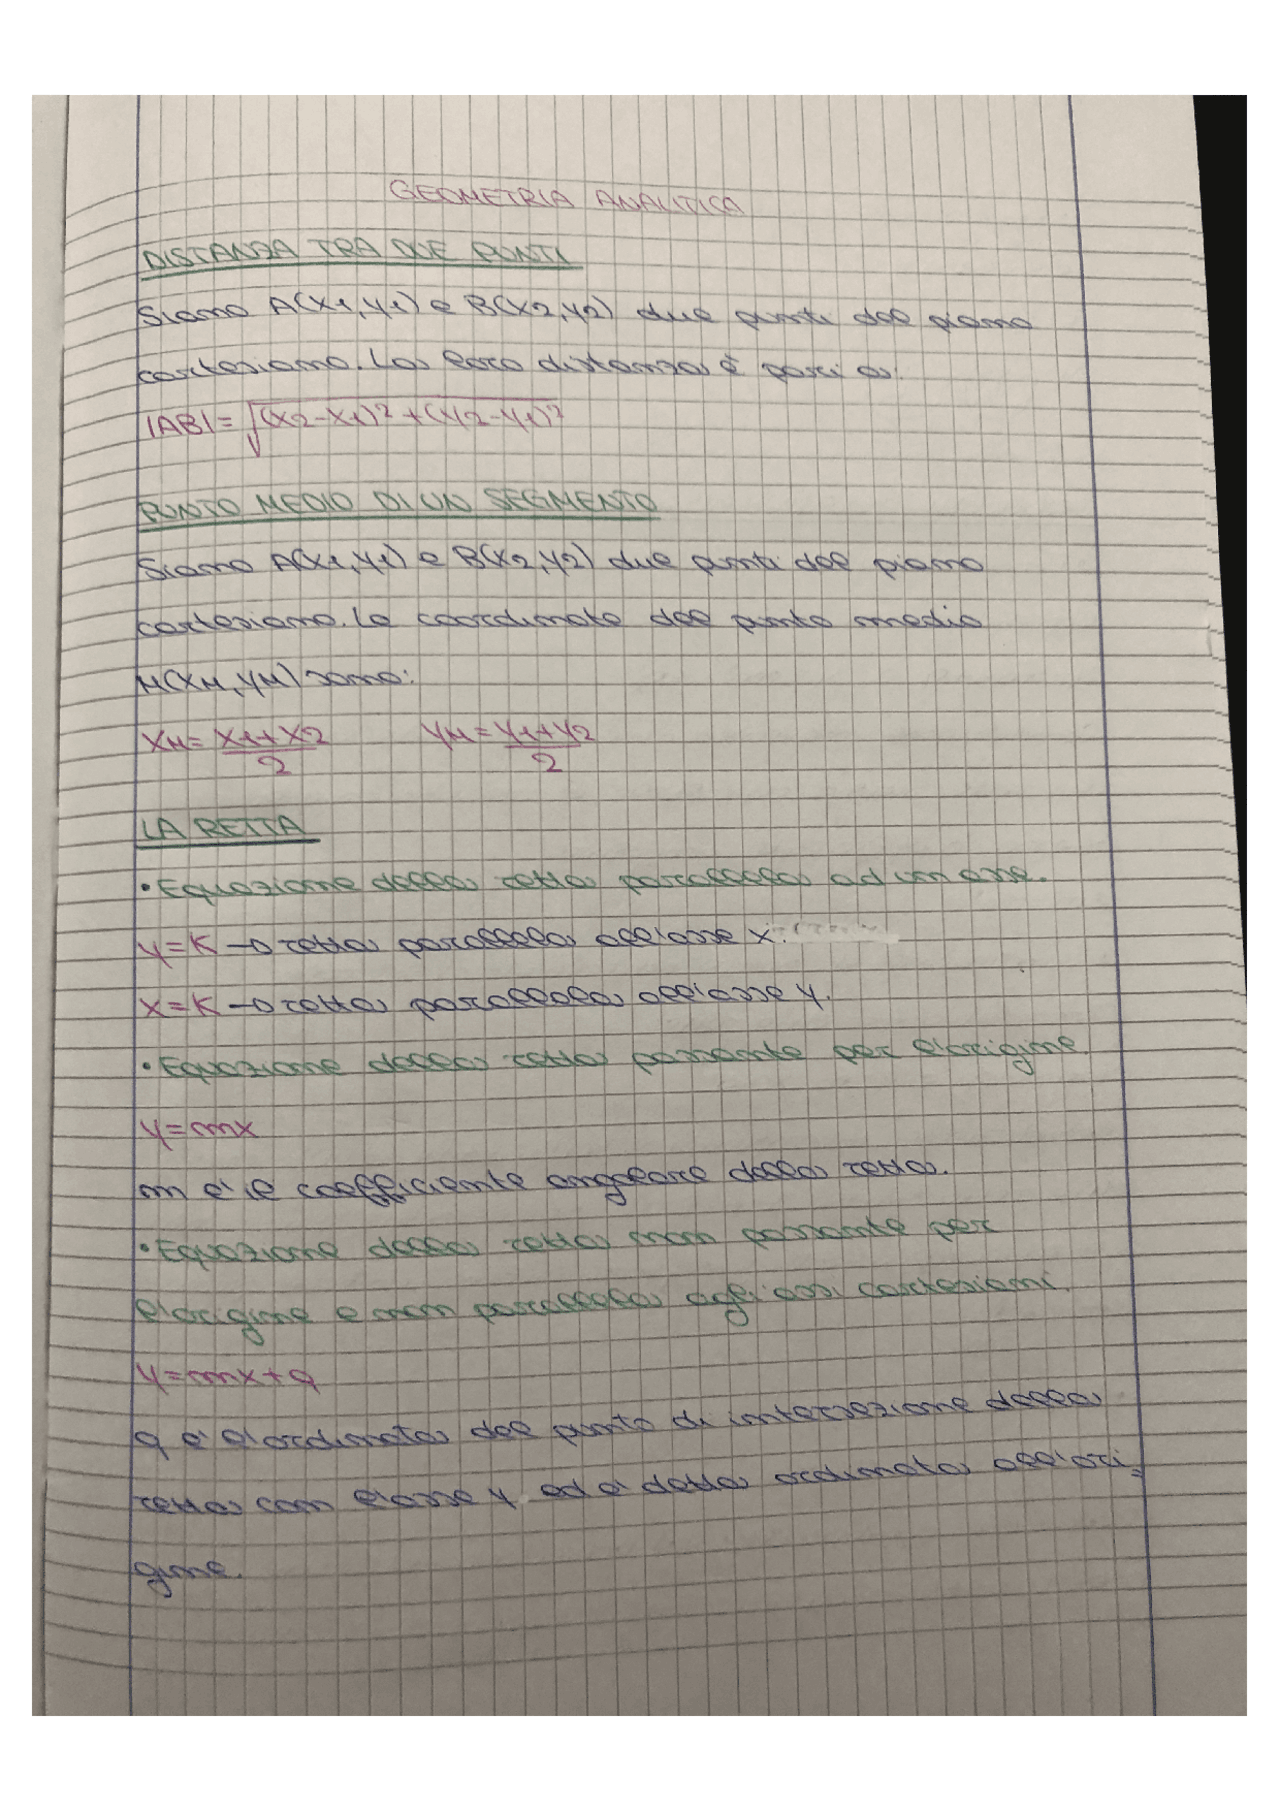 GEOMETRIA ANALITICA
DISTANZA TRA DUE PUNTI
Siano A(x1,y1) e B(x2,y2) due punti del piano
cartesiano. La loro distanza è pari a:
|AB|=√(x2-x1)²+(y2-y1)²
PUNTO MEDIO DI UN SEGMENTO
Siano A(x1,y1) e B(x2,y2) due punti del piano
cartesiano. Le coordinate del punto medio
M(xM,yM) sono:
xM= x1+x2/2 yM= y1+y2/2
LA RETTA
• Equazione della retta parallela ad un asse.
y=K → retta parallela all'asse x.
x=K → retta parallela all'asse y.
• Equazione della retta passante per l'origine.
y=mx
m e' il coefficiente angolare della retta.
• Equazione della retta non passante per
l'origine e non parallela agli assi cartesiani.
y=mx+q
q e' l'ordinata del punto di intersezione della
retta con l'asse y ed e' detta ordinata all'ori-
gine.